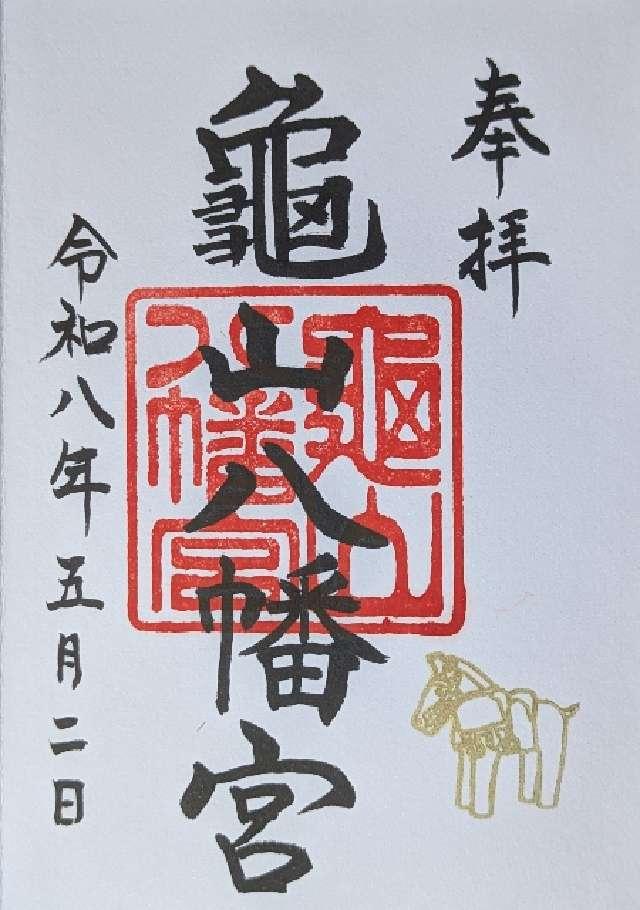 奉拝
龜山八幡宮
龜山八幡宮
令和八年五月二日